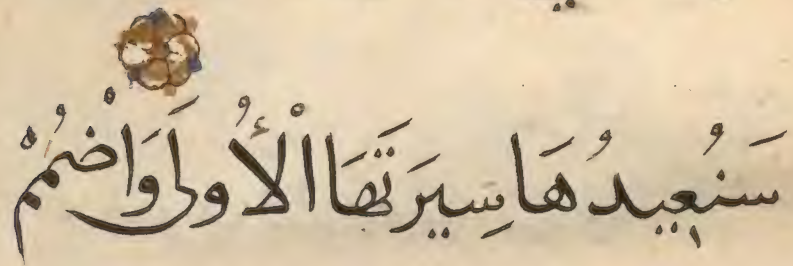 سَنُعِيدُهَا سِيرَتَهَا الْأُولَى وَاضْمُمْ